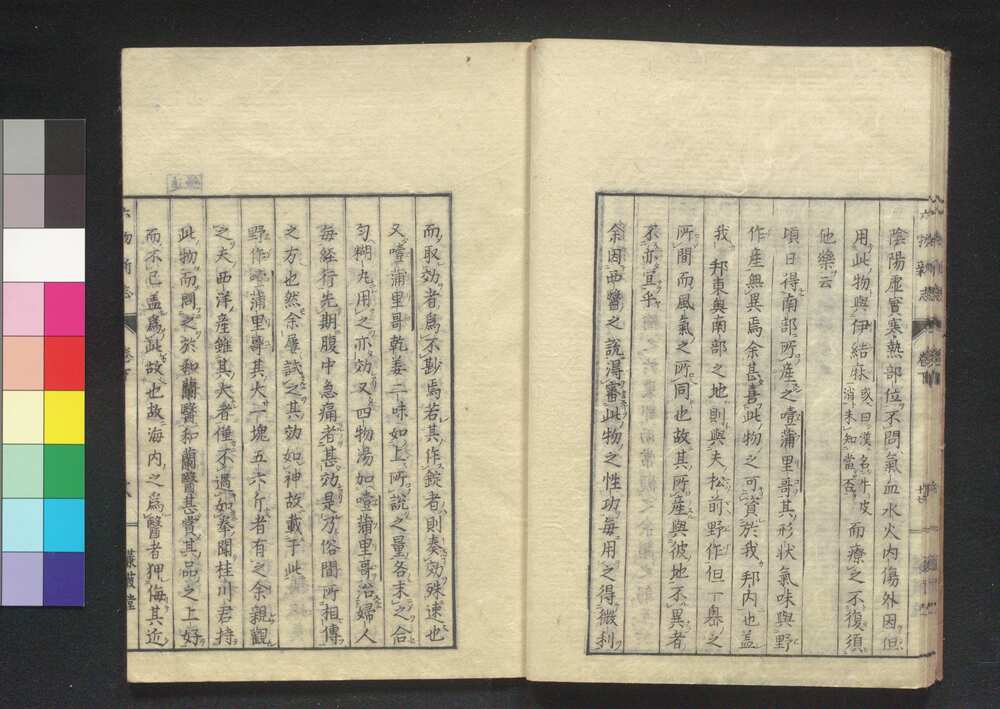 陰陽虛實寒熱部位不問氣血水火内傷外因但
用此物與伊結牀或曰漢名牛皮消未知當否而療之不復須
他藥云
頃日得南部所産之噎蒲里哥其形状氣味與野
作産無異焉余甚喜此物之可資於我邦内也盖
我邦東奥南部之地則與夫松前野作但一
所間而風氣之所同也故其所産與彼地不異者
不亦宜乎
余因西醫之説得審此物之性功毎用之得微利
而取効者爲不尠焉若其作錠者則奏効殊速也
又噎蒲里哥乾姜二味如上所説之量各末之合
匀糊丸用之亦効又四物湯加噎蒲里哥治婦人
毎經行先期腹中急痛者甚効是乃俗間所相傳
之方也然余屢試之其効如神故載于此
野作噎蒲里哥其大一塊五六斤者有之余親觀
之夫西洋産雖其大者僅不過如拳聞桂川君持
此物而問之於和蘭醫和蘭醫甚賞其品之上好
而不已盖爲此故也故海内之爲醫者狎侮其近
蒹葭堂